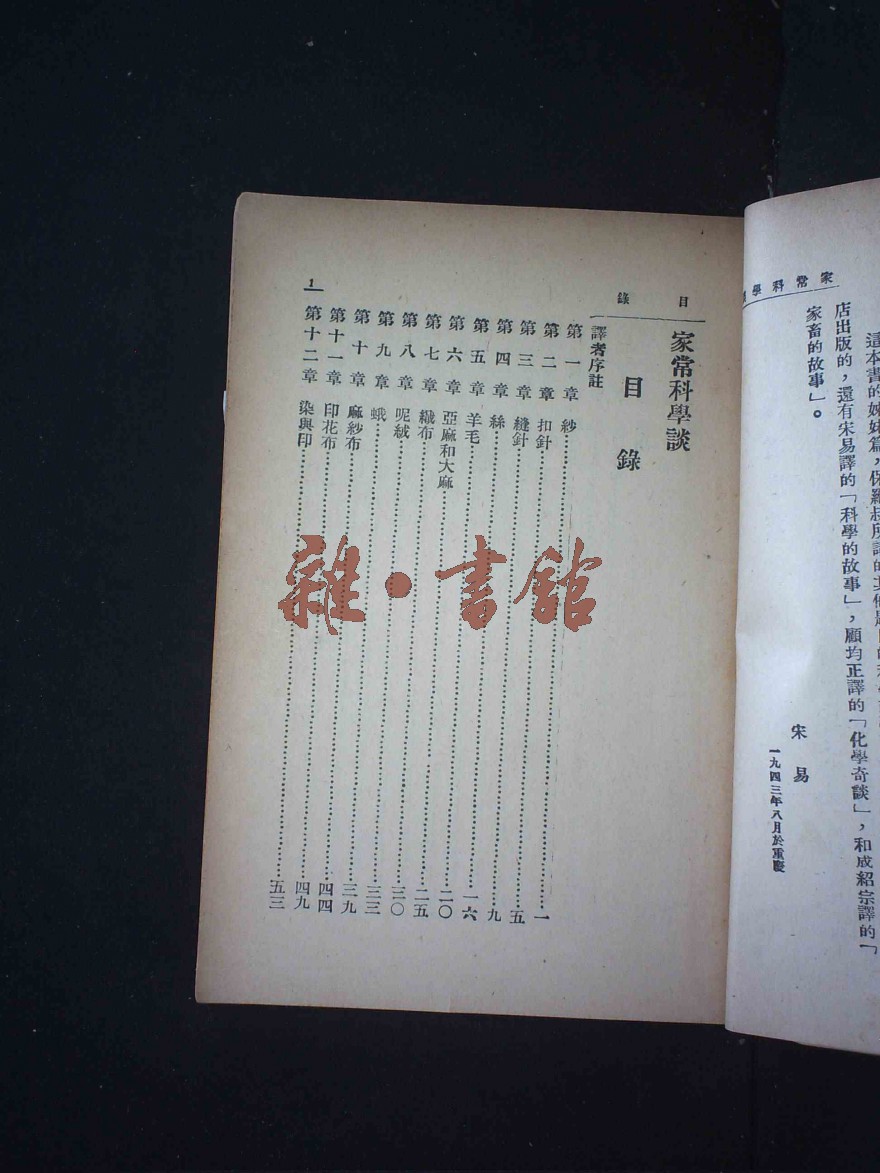 家常科學
這本書的姊妹篇，保羅叔
店出版的，還有宋易譯的「科學的故事」，顧均正譯的「化學奇談」，和成紹宗譯的「
家畜的故事」。
宋易
一九四三年八月於重慶
目錄
家常科學談
目錄
譯者序註
第一章 紗 一
第二章 扣針 五
第三章 縫針 九
第四章 絲 一六
第五章 羊毛 二〇
第六章 亞麻和大麻 二五
第七章 織布 三〇
第八章 呢絨 三三
第九章 蛾 三九
第十章 麻紗布 四四
第十一章 印花布 四九
第十二章 染與印 五三
1
雜·書館